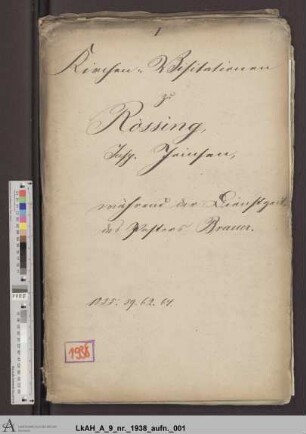 1
Kirchen-Visitationen
zu
Rössing,
Insp. Jeinsen,
während der Dienstzeit
des Pastors Brauer.
59. 62. 67.
1938
LkAH_A_9_nr._1938_aufn._001